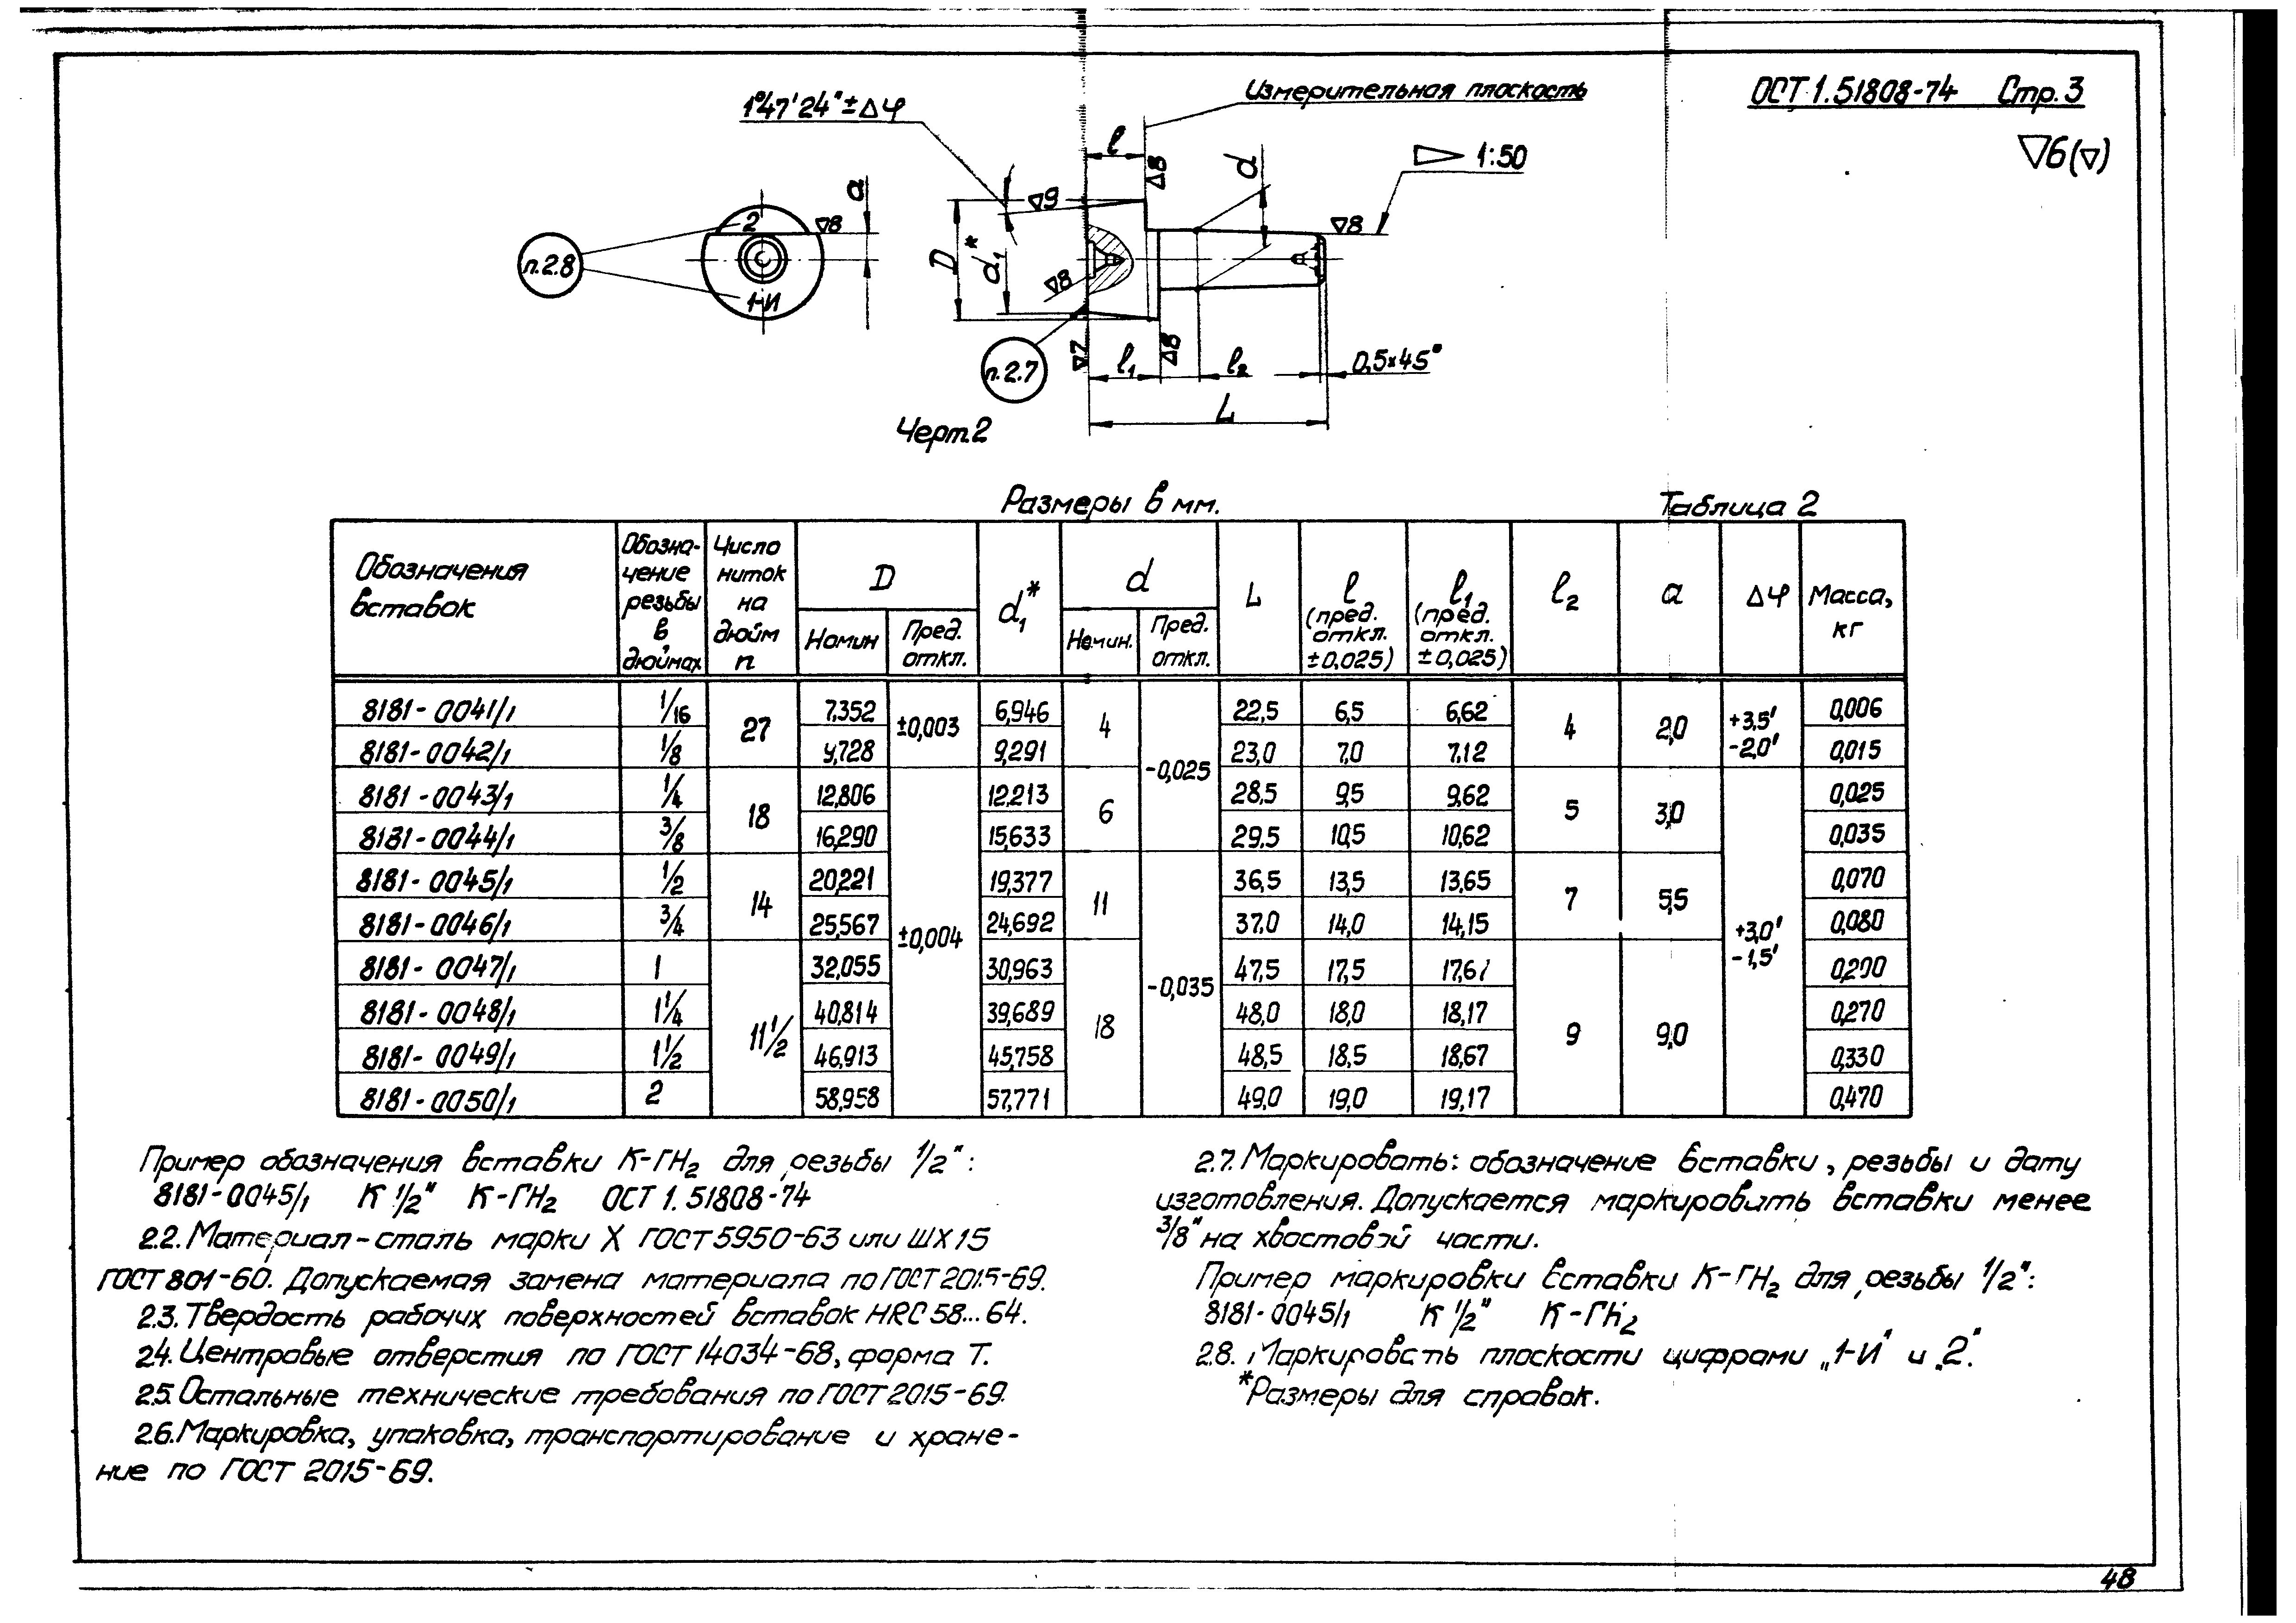 ОСТ 1.51808-74 Стр.3
▽6(▽)
1°47'24"±Δφ
Измерительная плоскость
l
▽8
d
▷ 1:50
a
▽9
2
▽8
▽8
п.2.8
D
d₁*
▽8
1-И
п.2.7
▽7
l₁
▽8
l₂
0,5×45°
L
Черт.2
Размеры в мм.
Таблица 2
Обозначения вставок | Обозначение резьбы в дюймах | Число ниток на дюйм n | D Номин | D Пред. откл. | d₁* | d Номин. | d Пред. откл. | L | l (пред. откл. ±0,025) | l₁ (пред. откл. ±0,025) | l₂ | a | Δφ | Масса, кг
8181-0041/1 | 1/16 | 27 | 7,352 | ±0,003 | 6,946 | 4 | -0,025 | 22,5 | 6,5 | 6,62 | 4 | 2,0 | +3,5' -2,0' | 0,006
8181-0042/1 | 1/8 | 9,728 | 9,291 | 23,0 | 7,0 | 7,12 | 0,015
8181-0043/1 | 1/4 | 18 | 12,806 | ±0,004 | 12,213 | 6 | 28,5 | 9,5 | 9,62 | 5 | 3,0 | +3,0' -1,5' | 0,025
8181-0044/1 | 3/8 | 16,290 | 15,633 | 29,5 | 10,5 | 10,62 | 0,035
8181-0045/1 | 1/2 | 14 | 20,221 | 19,377 | 11 | -0,035 | 36,5 | 13,5 | 13,65 | 7 | 5,5 | 0,070
8181-0046/1 | 3/4 | 25,567 | 24,692 | 37,0 | 14,0 | 14,15 | 0,080
8181-0047/1 | 1 | 11 1/2 | 32,055 | 30,963 | 18 | 47,5 | 17,5 | 17,67 | 9 | 9,0 | 0,200
8181-0048/1 | 1 1/4 | 40,814 | 39,689 | 48,0 | 18,0 | 18,17 | 0,270
8181-0049/1 | 1 1/2 | 46,913 | 45,758 | 48,5 | 18,5 | 18,67 | 0,330
8181-0050/1 | 2 | 58,958 | 57,771 | 49,0 | 19,0 | 19,17 | 0,470
Пример обозначения вставки К-ГН₂ для резьбы 1/2":
8181-0045/1 К 1/2" К-ГН₂ ОСТ 1.51808-74
2.2. Материал-сталь марки Х ГОСТ 5950-63 или ШХ15
ГОСТ 801-60. Допускаемая замена материала по ГОСТ 2015-69.
2.3. Твердость рабочих поверхностей вставок HRC 58...64.
2.4. Центровые отверстия по ГОСТ 14034-68, форма Т.
2.5. Остальные технические требования по ГОСТ 2015-69.
2.6. Маркировка, упаковка, транспортирование и хране-
ние по ГОСТ 2015-69.
2.7. Маркировать: обозначение вставки, резьбы и дату
изготовления. Допускается маркировать вставки менее
3/8" на хвостовой части.
Пример маркировки вставки К-ГН₂ для резьбы 1/2":
8181-0045/1 К 1/2" К-ГН₂
2.8. Маркировать плоскости цифрами „1-И" и „2".
*Размеры для справок.
48